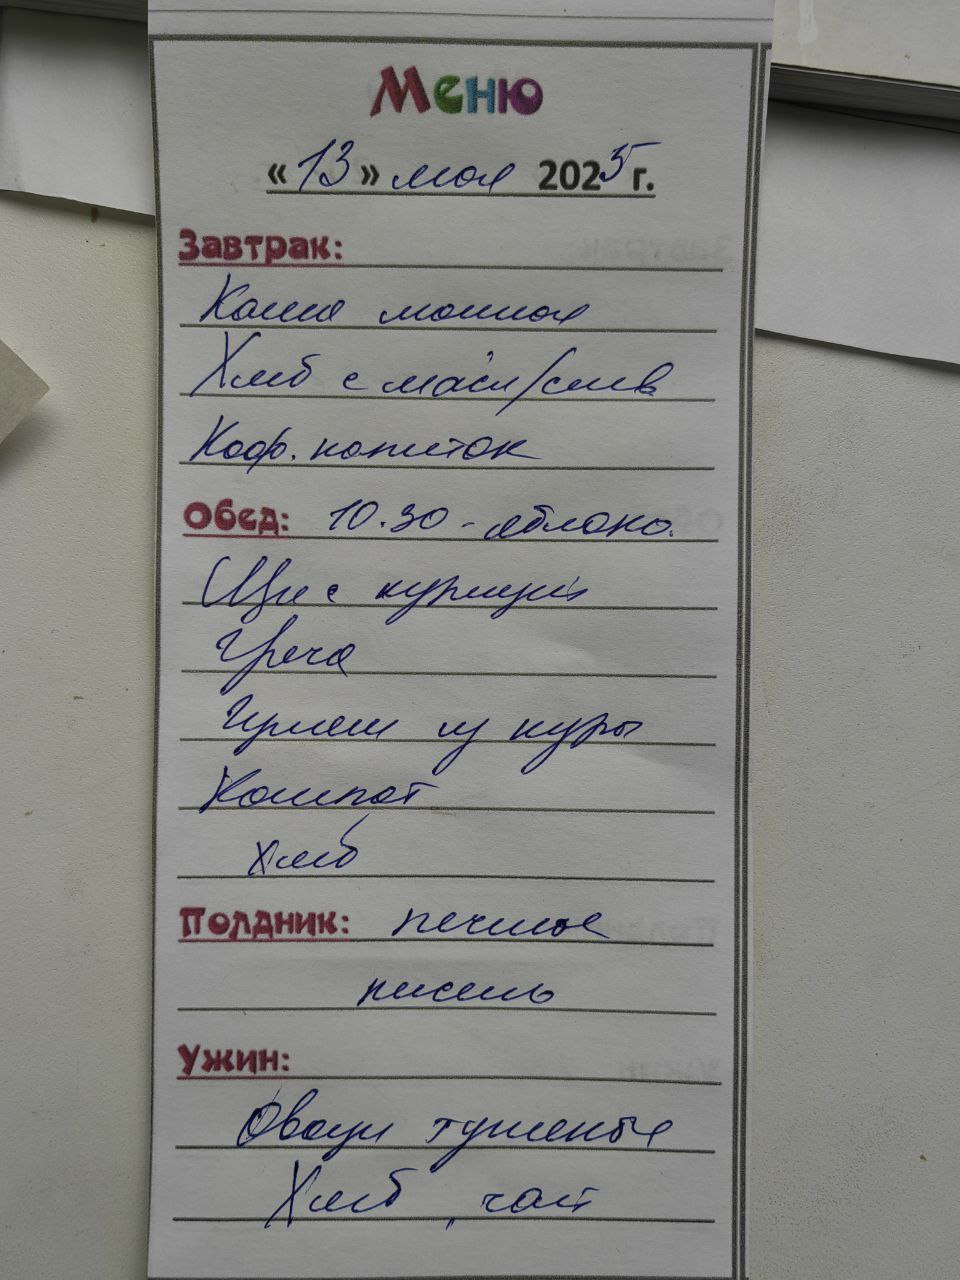 Меню
«13» мая 2025 г.
Завтрак:
Каша манная
Хлеб с масл/слив
Коф. напиток
Обед: 10.30 - яблоко.
Щи с курицей
Греча
Гуляш из куры
Компот
Хлеб
Полдник: печенье
кисель
Ужин:
Овощи тушеные
Хлеб, чай